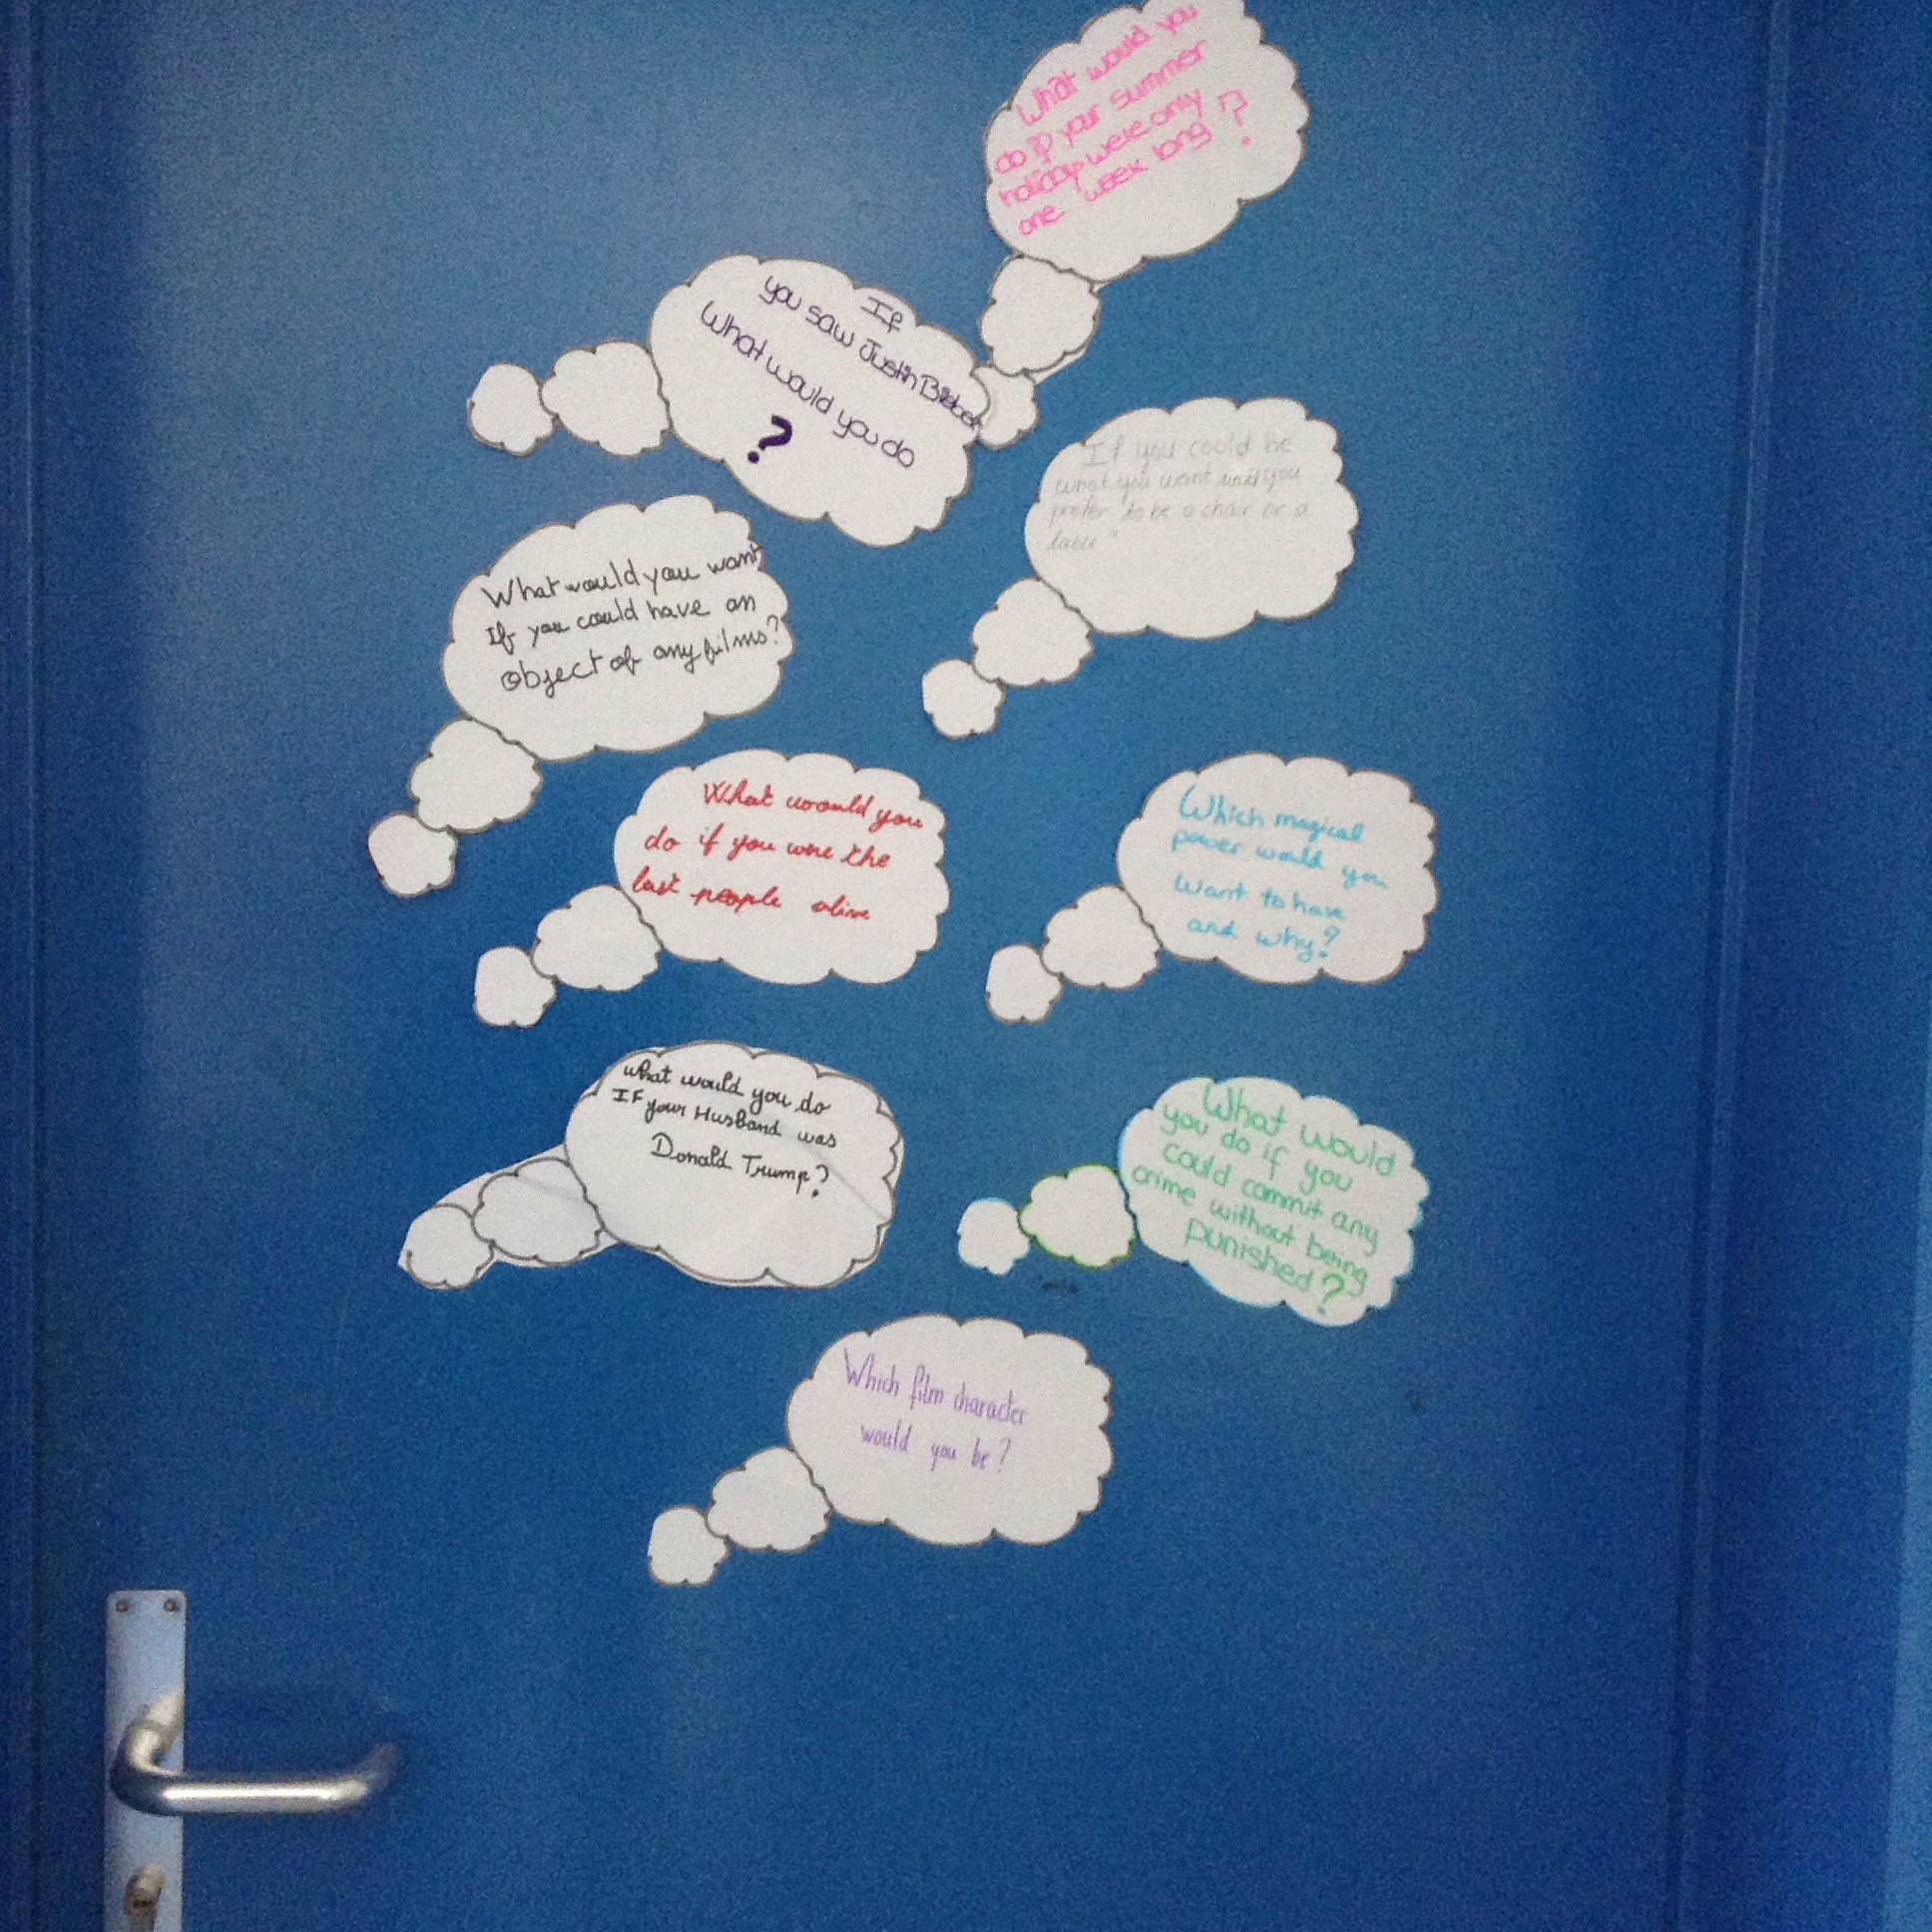 What would you
do if your summer
holiday were only
one week long ?
If
you saw Justin Bieber
What would you do
?
If you could be
what you want would you
prefer to be a chair or a
table"
What would you want
If you could have an
object of any films?
What would you
do if you were the
last people alive
Which magical
power would you
want to have
and why?
what would you do
IF your Husband was
Donald Trump?
What would
you do if you
could commit any
crime without being
punished?
Which film character
would you be?